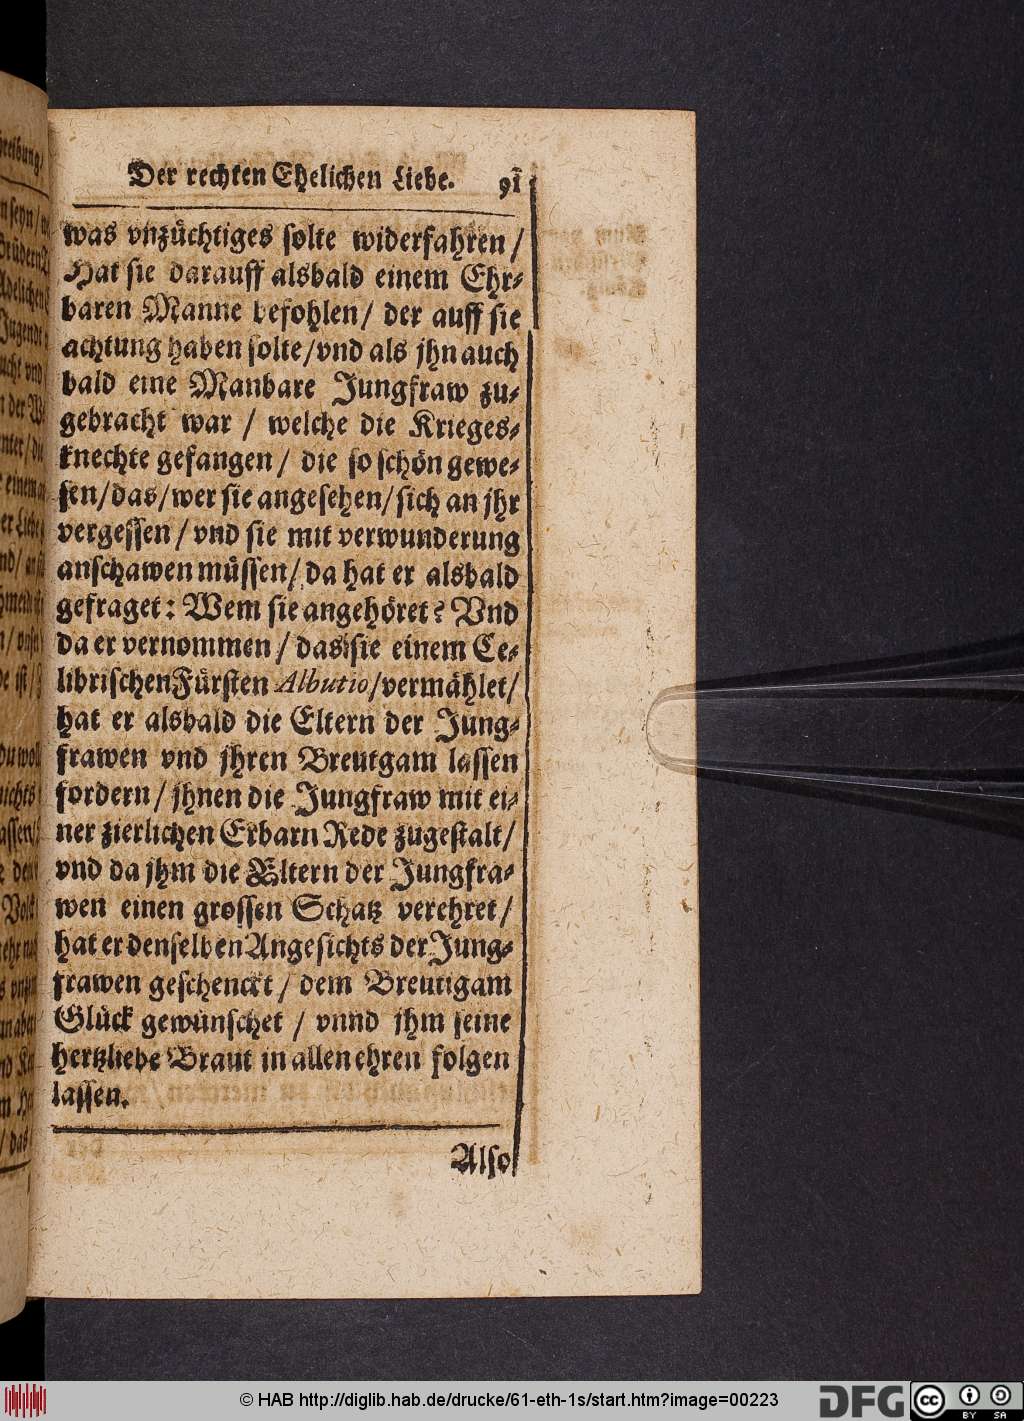 Der rechten Ehelichen Liebe. 91
was vnzüchtiges solte widerfahren /
Hat sie darauff alsbald einem Ehr-
baren Manne befohlen / der auff sie
achtung haben solte / vnd als jhn auch
bald eine Manbare Jungfraw zu-
gebracht war / welche die Krieges-
knechte gefangen / die so schön gewe-
sen / das / wer sie angesehen / sich an jhr
vergessen / vnd sie mit verwunderung
anschawen müssen / da hat er alsbald
gefraget: Wem sie angehöret? Vnd
da er vernommen / das sie einem Ce-
librischen Fürsten Albutio / vermählet /
hat er alsbald die Eltern der Jung-
frawen vnd jhren Breutgam lassen
fordern / jhnen die Jungfraw mit ei-
ner zierlichen Erbarn Rede zugestalt /
vnd da jhm die Eltern der Jungfra-
wen einen grossen Schatz verehret /
hat er denselben Angesichts der Jung-
frawen geschenckt / dem Breutigam
Glück gewünschet / vnnd jhm seine
hertzliebe Braut in allen ehren folgen
lassen.
Also
© HAB http://diglib.hab.de/drucke/61-eth-1s/start.htm?image=00223
DFG
cc
BY SA